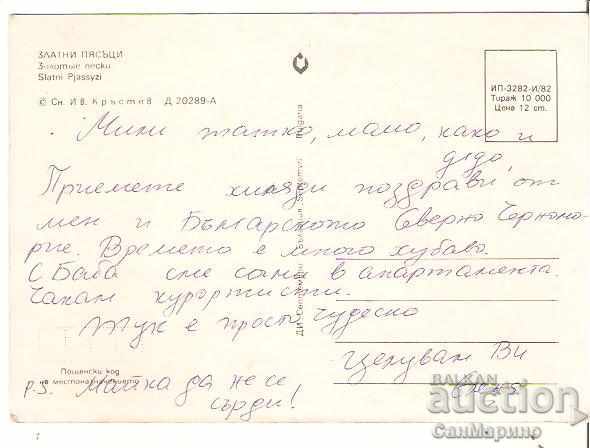 ЗЛАТНИ ПЯСЪЦИ
Золотые пески
Slatni Pjassyzi
© Сн. Ив. Кръстев Д 20289-А
ИП-3282-И/82
Тираж 10 000
Цена 12 ст.
Мили татко, мамо, како и
дядо,
Приемете хиляди поздрави от
мен и Българското Северно Черномо-
рие. Времето е много хубаво.
С Баба сме сами в апартамента.
Чакам курортисти.
Тук е просто чудесно
Целувам Ви
Пощенски код
на местоназначението
P.S. Майка да не се
сърди!
BALKAN
auction
СанМарино